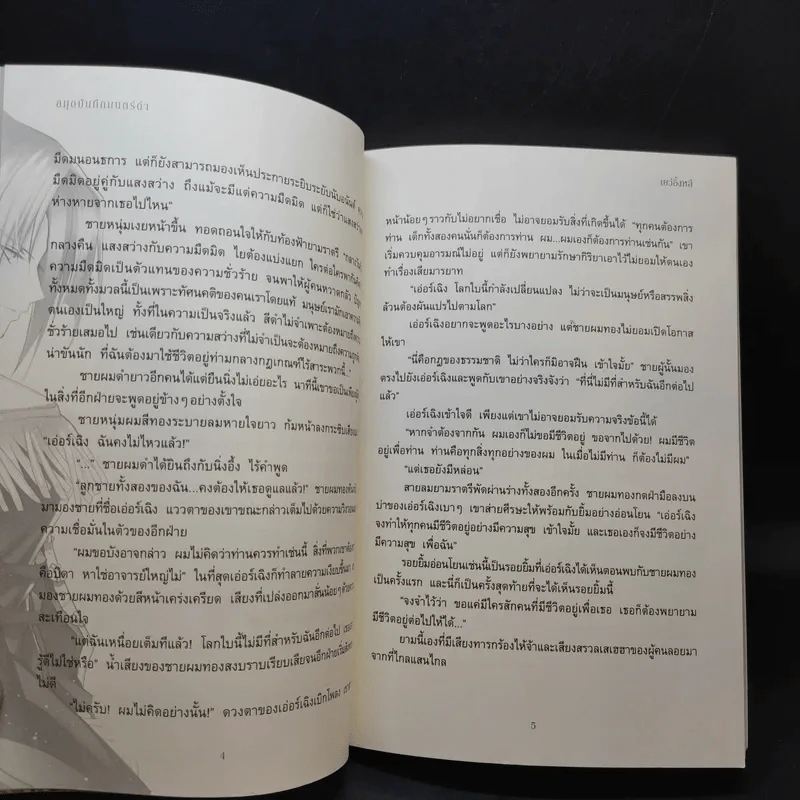 สมุดบันทึกมนตร์ดำ
มืดมนอนธการ แต่ก็ยังสามารถมองเห็นประกายระยิบระยับนับอนันต์
มืดมิดอยู่คู่กับแสงสว่าง ถึงแม้จะมีแต่ความมืดมิด แต่ก็ใช่ว่าแสงสว่าง
ห่างหายจากเธอไปไหน”
ชายหนุ่มเงยหน้าขึ้น ทอดถอนใจให้กับท้องฟ้ายามราตรี “กลางวัน
กลางคืน แสงสว่างกับความมืดมิด ไยต้องแบ่งแยก ใครต่อใครพากัน
ความมืดมิดเป็นตัวแทนของความชั่วร้าย จนพาให้ผู้คนหวาดกลัว
ทั้งหมดทั้งมวลนี้เป็นเพราะทัศนคติของคนเราโดยแท้ มนุษย์เรามัก
ตนเองเป็นใหญ่ ทั้งที่ในความเป็นจริงแล้ว สีดำไม่จำเพาะต้องหมายถึง
ชั่วร้ายเสมอไป เช่นเดียวกับความสว่างที่ไม่จำเป็นจะต้องหมายถึงความ
น่าขันนัก ที่ฉันต้องมาใช้ชีวิตอยู่ท่ามกลางกฎเกณฑ์ไร้สาระพวกนี้...”
ชายผมดำยาวอีกคนได้แต่ยืนนิ่งไม่เอ่ยอะไร นาทีนี้เขาขอเป็นเพียง
ในสิ่งที่อีกฝ่ายจะพูดอยู่ข้างๆ อย่างตั้งใจ
ชายหนุ่มผมสีทองระบายลมหายใจยาว ก้มหน้าลงกระซิบ
“เอ่อร์เฉิง ฉันคงไม่ไหวแล้ว!”
“...” ชายผมดำได้ยินถึงกับนิ่งอึ้ง ไร้คำพูด
“ลูกชายทั้งสองของฉัน...คงต้องให้เธอดูแลแล้ว!” ชายผมทอง
มามองชายที่ชื่อเอ่อร์เฉิง แววตาของเขาขณะกล่าวเต็มไปด้วยความ
ความเชื่อมั่นในตัวของอีกฝ่าย
“ผมขอบังอาจกล่าว ผมไม่คิดว่าท่านควรทำเช่นนี้ สิ่งที่พวกเขา
คือบิดา หาใช่อาจารย์ใหญ่ไม่” ในที่สุดเอ่อร์เฉิงก็ทำลายความเงียบขึ้น
มองชายผมทองด้วยสีหน้าเคร่งเครียด เสียงที่เปล่งออกมาสั่นน้อยๆ
สะเทือนใจ
“แต่ฉันเหนื่อยเต็มทีแล้ว! โลกใบนี้ไม่มีที่สำหรับฉันอีกต่อไป
รู้ดีไม่ใช่หรือ” น้ำเสียงของชายผมทองสงบราบเรียบเสียจนอีกฝ่าย
ไม่ดี
“ไม่ครับ! ผมไม่คิดอย่างนั้น!” ดวงตาของเอ่อร์เฉิงเบิกโพลง
4
เยว่อิ้งหลี
หน้าน้อยๆ ราวกับไม่อยากเชื่อ ไม่อาจยอมรับสิ่งที่เกิดขึ้นได้ “ทุกคนต้องการ
ท่าน เด็กทั้งสองคนนั่นก็ต้องการท่าน ผม...ผมเองก็ต้องการท่านเช่นกัน” เขา
เริ่มควบคุมอารมณ์ไม่อยู่ แต่ก็ยังพยายามรักษากิริยาเอาไว้ไม่ยอมให้ตนเอง
ทำเรื่องเสียมารยาท
“เอ่อร์เฉิง โลกใบนี้กำลังเปลี่ยนแปลง ไม่ว่าจะเป็นมนุษย์หรือสรรพสิ่ง
ล้วนต้องผันแปรไปตามโลก”
เอ่อร์เฉิงอยากจะพูดอะไรบางอย่าง แต่ชายผมทองไม่ยอมเปิดโอกาส
ให้เขา
“นี่คือกฎของธรรมชาติ ไม่ว่าใครก็มิอาจฝืน เข้าใจมั้ย” ชายผู้นั้นมอง
ตรงไปยังเอ่อร์เฉิงและพูดกับเขาอย่างจริงจังว่า “ที่นี่ไม่มีที่สำหรับฉันอีกต่อไป
แล้ว”
เอ่อร์เฉิงเข้าใจดี เพียงแต่เขาไม่อาจยอมรับความจริงข้อนี้ได้
“หากจำต้องจากกัน ผมเองก็ไม่ขอมีชีวิตอยู่ ขอจากไปด้วย! ผมมีชีวิต
อยู่เพื่อท่าน ท่านคือทุกสิ่งทุกอย่างของผม ในเมื่อไม่มีท่าน ก็ต้องไม่มีผม”
“แต่เธอยังมีหล่อน”
สายลมยามราตรีพัดผ่านร่างทั้งสองอีกครั้ง ชายผมทองกดฝ่ามือลงบน
บ่าของเอ่อร์เฉิงเบาๆ เขาส่ายศีรษะให้พร้อมกับยิ้มอย่างอ่อนโยน “เอ่อร์เฉิง
จงทำให้ทุกคนมีชีวิตอยู่อย่างมีความสุข เข้าใจมั้ย และเธอเองก็จงมีชีวิตอย่าง
มีความสุข เพื่อฉัน”
รอยยิ้มอ่อนโยนเช่นนี้เป็นรอยยิ้มที่เอ่อร์เฉิงได้เห็นตอนพบกับชายผมทอง
เป็นครั้งแรก และนี่ก็เป็นครั้งสุดท้ายที่จะได้เห็นรอยยิ้มนี้
“จงจำไว้ว่า ขอแค่มีใครสักคนที่มีชีวิตอยู่เพื่อเธอ เธอก็ต้องพยายาม
มีชีวิตอยู่ต่อไปให้ได้...”
ยามนี้เองที่มีเสียงทารกร้องไห้จ้าและเสียงสรวลเสเฮฮาของผู้คนลอยมา
จากที่ไกลแสนไกล
5